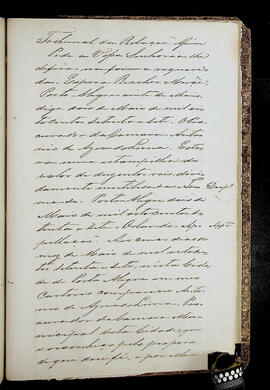 Tribunal da Relação. Assim
Pede a Vossa Senhoria de
deferir na forma requeri-
da. Espera Receber Mercê.
Porto Alegre vinte de Maio,
digo dois de Maio de mil oito
centos setenta e sete. O Pro-
curador da Camara Anto-
nio de Azevedo Lima. Esta-
va uma estampilha do
valor de duzentos reis devi-
damente inutilisada. Desp.º
me-se. Porto Alegre dois de
Maio de mil oitocentos se-
tenta e sete. Ap-
pellação. Aos cinco dias do
mez de Maio de mil oitocen-
tos setenta e sete, nesta Cida-
de de Porto Alegre em meu
Cartorio compareceu Anto-
nio de Azevedo Lima, Pro-
curador da Camara Mu-
nicipal desta Cidade, que
o reconheço pelo proprio
de que dou fé, e por elle